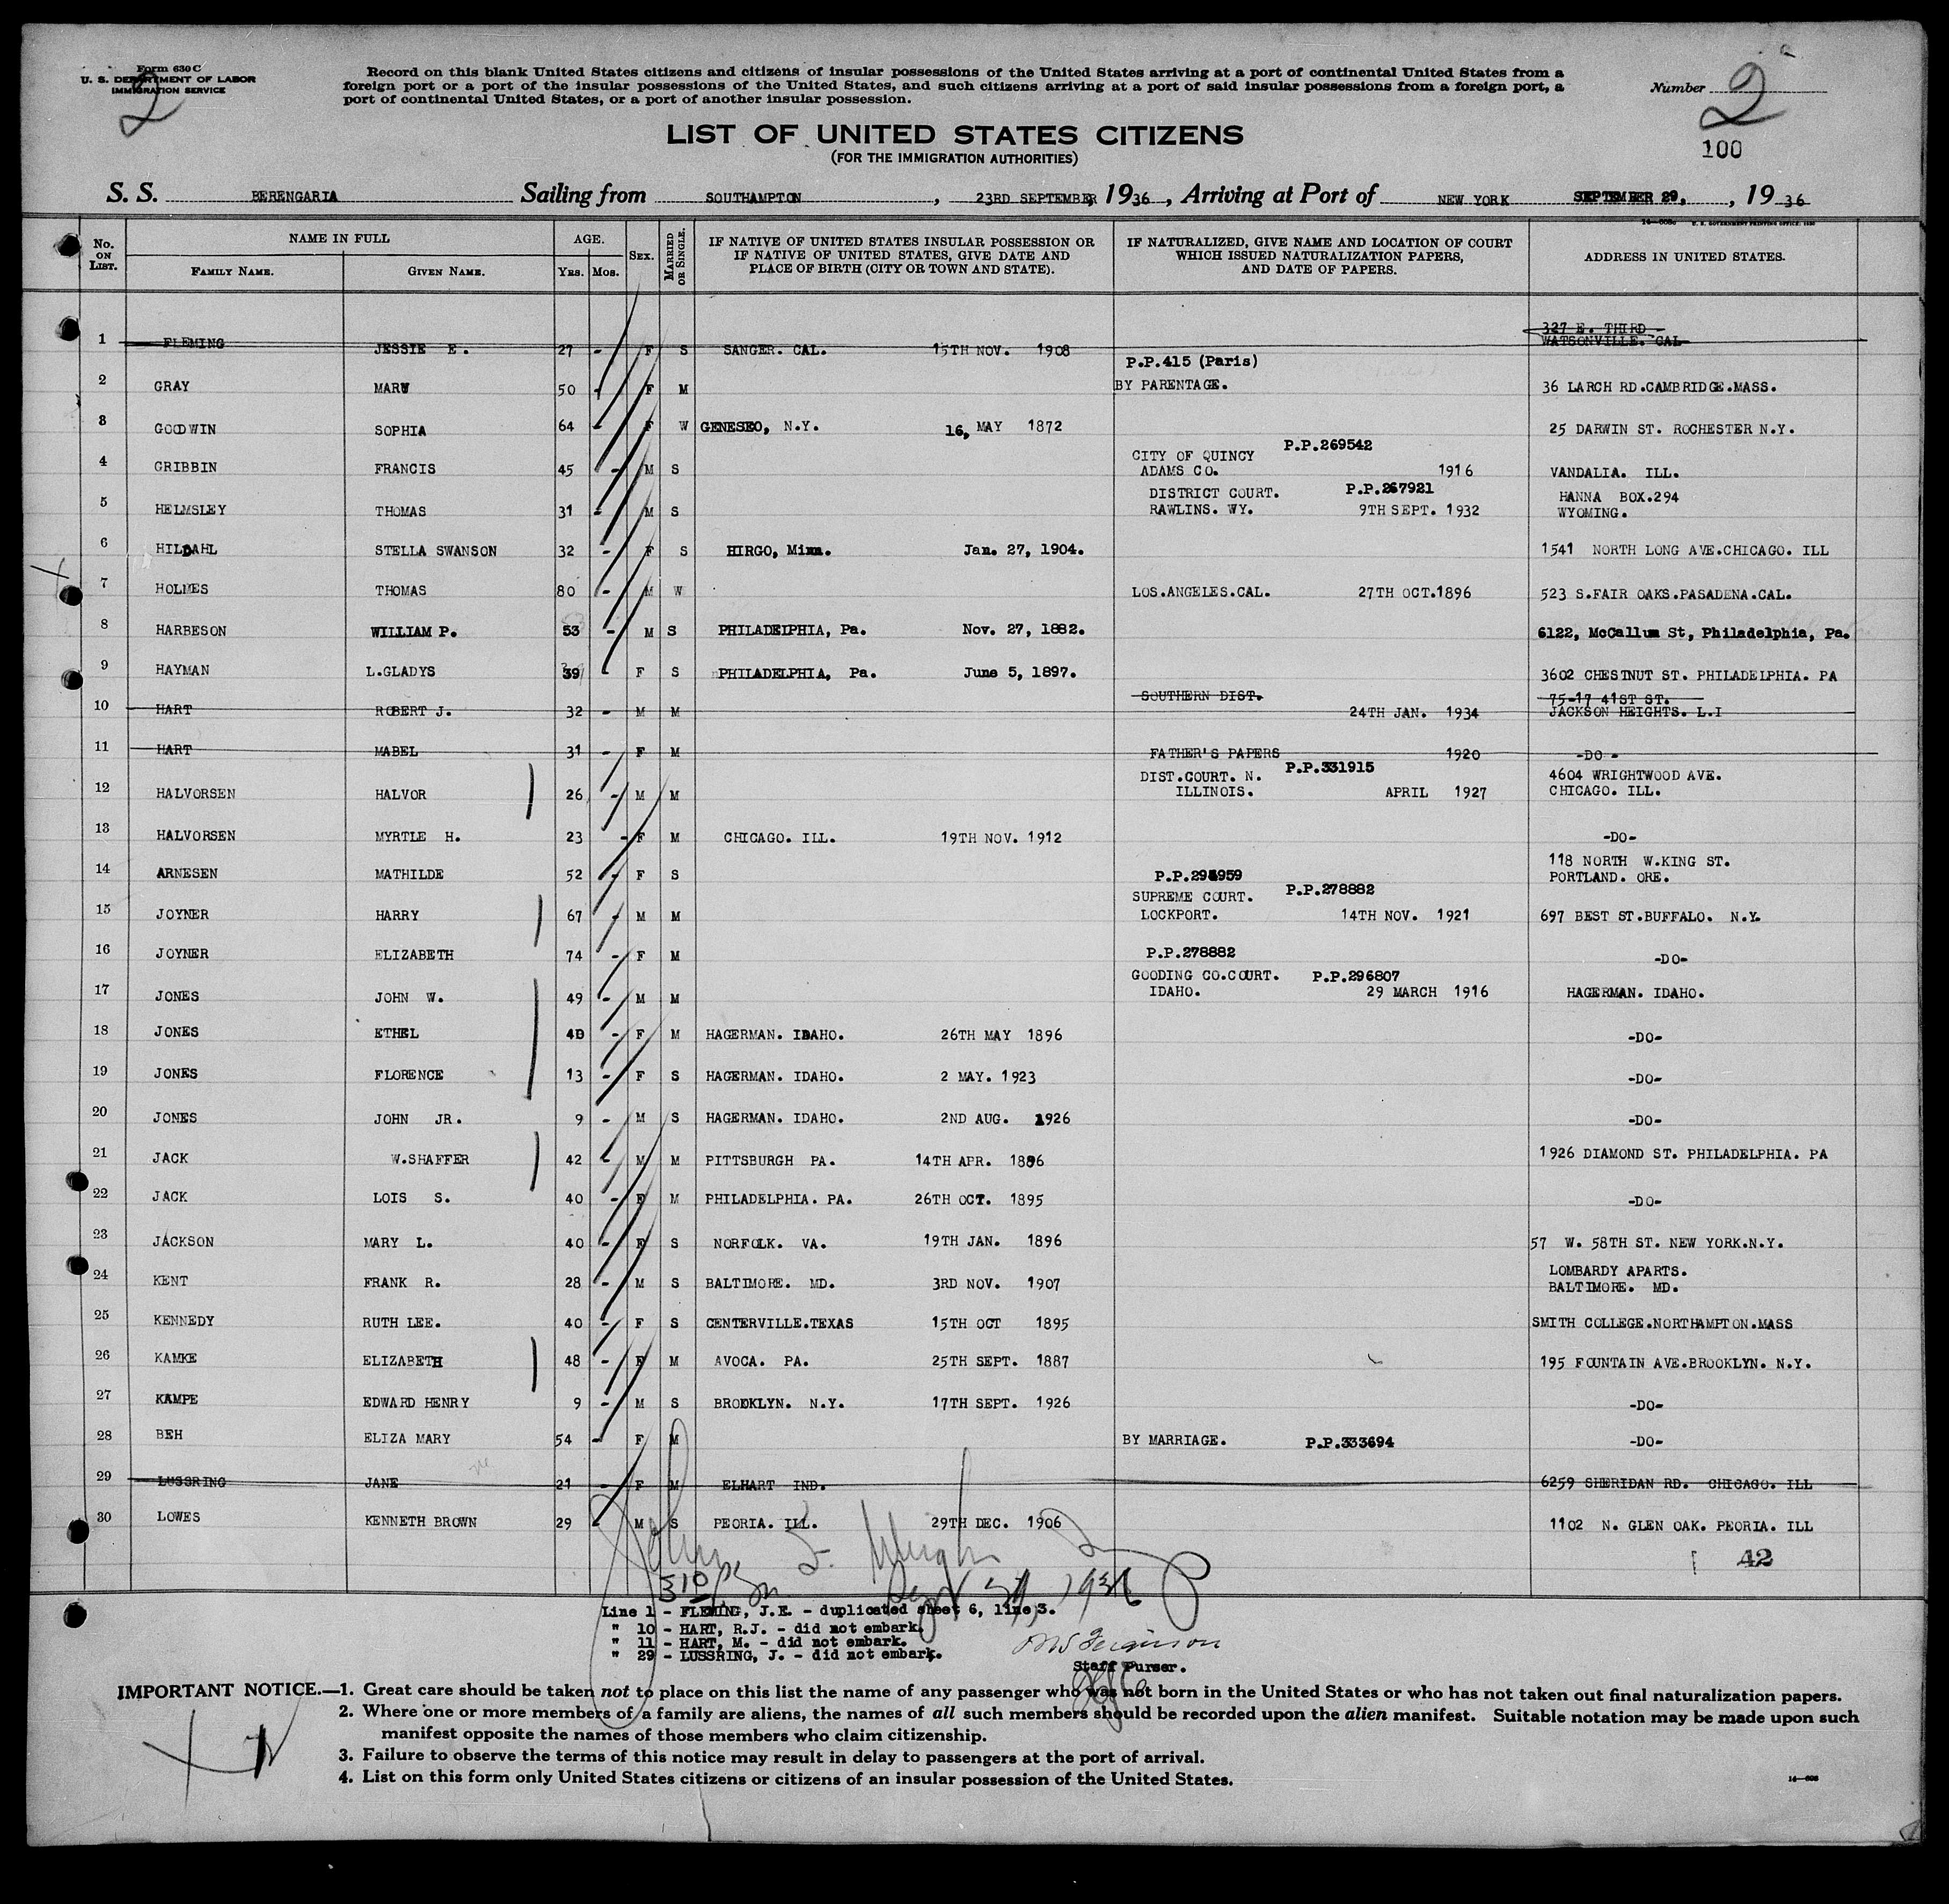 Form 630 C
U. S. DEPARTMENT OF LABOR
IMMIGRATION SERVICE
2
Record on this blank United States citizens and citizens of insular possessions of the United States arriving at a port of continental United States from a
foreign port or a port of the insular possessions of the United States, and such citizens arriving at a port of said insular possessions from a foreign port, a
port of continental United States, or a port of another insular possession.
Number 2
100
LIST OF UNITED STATES CITIZENS
(FOR THE IMMIGRATION AUTHORITIES)
S. S. BERENGARIA Sailing from SOUTHAMPTON, 23RD SEPTEMBER, 1936, Arriving at Port of NEW YORK SEPTEMBER 29, , 1936
No. ON LIST. NAME IN FULL FAMILY NAME. GIVEN NAME. AGE. YRS. MOS. SEX. MARRIED OR SINGLE. IF NATIVE OF UNITED STATES INSULAR POSSESSION OR IF NATIVE OF UNITED STATES, GIVE DATE AND PLACE OF BIRTH (CITY OR TOWN AND STATE). IF NATURALIZED, GIVE NAME AND LOCATION OF COURT WHICH ISSUED NATURALIZATION PAPERS, AND DATE OF PAPERS. ADDRESS IN UNITED STATES.
327 E. THIRD
1 FLEMING JESSIE E. 27 - F S SANGER. CAL. 15TH NOV. 1908 WATSONVILLE. CAL
P.P.415 (Paris)
2 GRAY MARY 50 - F M BY PARENTAGE. 36 LARCH RD.CAMBRIDGE.MASS.
3 GOODWIN SOPHIA 64 - F W GENESEO, N.Y. 16, MAY 1872 25 DARWIN ST. ROCHESTER N.Y.
CITY OF QUINCY P.P.269542
4 GRIBBIN FRANCIS 45 - M S ADAMS CO. 1916 VANDALIA. ILL.
DISTRICT COURT. P.P.267921 HANNA BOX.294
5 HELMSLEY THOMAS 31 - M S RAWLINS. WY. 9TH SEPT. 1932 WYOMING.
6 HILDAHL STELLA SWANSON 32 - F S HIRGO, Minn. Jan. 27, 1904. 1541 NORTH LONG AVE.CHICAGO. ILL
7 HOLMES THOMAS 80 - M W LOS.ANGELES.CAL. 27TH OCT.1896 523 S.FAIR OAKS.PASADENA.CAL.
8 HARBESON WILLIAM P. 53 - M S PHILADELPHIA, Pa. Nov. 27, 1882. 6122, McCallum St, Philadelphia, Pa.
9 HAYMAN L.GLADYS 39 - F S PHILADELPHIA, Pa. June 5, 1897. 3602 CHESTNUT ST. PHILADELPHIA. PA
SOUTHERN DIST. 75-17 41ST ST.
10 HART ROBERT J. 32 - M M 24TH JAN. 1934 JACKSON HEIGHTS. L.I
11 HART MABEL 31 - F M FATHER'S PAPERS 1920 -DO-
DIST.COURT. N. P.P.331915 4604 WRIGHTWOOD AVE.
12 HALVORSEN HALVOR 26 - M M ILLINOIS. APRIL 1927 CHICAGO. ILL.
13 HALVORSEN MYRTLE H. 23 - F M CHICAGO. ILL. 19TH NOV. 1912 -DO-
118 NORTH W.KING ST.
14 ARNESEN MATHILDE 52 - F S PORTLAND. ORE.
SUPREME COURT. P.P.278882
15 JOYNER HARRY 67 - M M LOCKPORT. 14TH NOV. 1921 697 BEST ST.BUFFALO. N.Y.
16 JOYNER ELIZABETH 74 - F M P.P.278882 -DO-
GOODING CO.COURT. P.P.296807
17 JONES JOHN W. 49 - M M IDAHO. 29 MARCH 1916 HAGERMAN. IDAHO.
18 JONES ETHEL 40 - F M HAGERMAN. IDAHO. 26TH MAY 1896 -DO-
19 JONES FLORENCE 13 - F S HAGERMAN. IDAHO. 2 MAY. 1923 -DO-
20 JONES JOHN JR. 9 - M S HAGERMAN. IDAHO. 2ND AUG. 1926 -DO-
21 JACK W.SHAFFER 42 - M M PITTSBURGH PA. 14TH APR. 1926 DIAMOND ST. PHILADELPHIA. PA
22 JACK LOIS S. 40 - F M PHILADELPHIA. PA. 26TH OCT. 1895 -DO-
23 JACKSON MARY L. 40 - F S NORFOLK. VA. 19TH JAN. 1896 57 W. 58TH ST. NEW YORK.N.Y.
LOMBARDY APARTS.
24 KENT FRANK R. 28 - M S BALTIMORE. MD. 3RD NOV. 1907 BALTIMORE. MD.
25 KENNEDY RUTH LEE. 40 - F S CENTERVILLE.TEXAS 15TH OCT 1895 SMITH COLLEGE.NORTHAMPTON.MASS
26 KAMKE ELIZABETH 48 - F M AVOCA. PA. 25TH SEPT. 1887 195 FOUNTAIN AVE.BROOKLYN. N.Y.
27 KAMPE EDWARD HENRY 9 - M S BROOKLYN. N.Y. 17TH SEPT. 1926 -DO-
28 BEH ELIZA MARY 54 - F M BY MARRIAGE. P.P.333694 -DO-
29 LUSSRING JANE 21 - F M ELHART IND. 6259 SHERIDAN RD. CHICAGO. ILL
30 LOWES KENNETH BROWN 29 - M S PEORIA. ILL. 29TH DEC. 1906 1102 N. GLEN OAK. PEORIA. ILL
42
Line 1 - FLEMING, J.E. - duplicated sheet 6, line 3.
" 10 - HART, R.J. - did not embark.
" 11 - HART, M. - did not embark.
" 29 - LUSSRING, J. - did not embark.
Staff Purser.
IMPORTANT NOTICE.—1. Great care should be taken not to place on this list the name of any passenger who was not born in the United States or who has not taken out final naturalization papers.
2. Where one or more members of a family are aliens, the names of all such members should be recorded upon the alien manifest. Suitable notation may be made upon such
manifest opposite the names of those members who claim citizenship.
3. Failure to observe the terms of this notice may result in delay to passengers at the port of arrival.
4. List on this form only United States citizens or citizens of an insular possession of the United States.